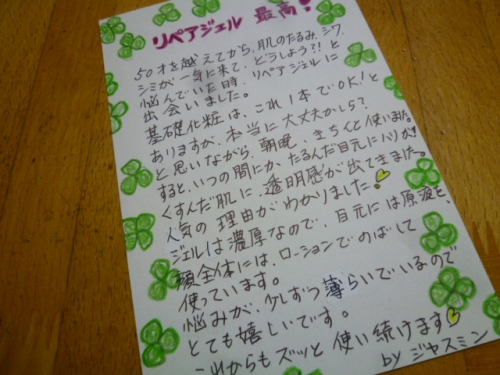 リペアジェル 最高!
50才を越えてから、肌のたるみ、シワ、
シミが一斉に来て、どうしよう?!と
悩んでいた時、リペアジェルに
出会いました。
基礎化粧は、これ1本でOK!と
ありますが、本当に大丈夫かしら?
と思いながら、朝晩、きちんと使いました。
すると、いつの間にか、たるんだ目元にハリが!
くすんだ肌に、透明感が出てきました。
人気の理由がわかりました!
ジェルは濃厚なので、目元には原液を、
顔全体には、ローションでのばして
使っています。
悩みが、少しずつ薄らいでいるので
とても嬉しいです。
これからもズッと使い続けます
by ジャスミン